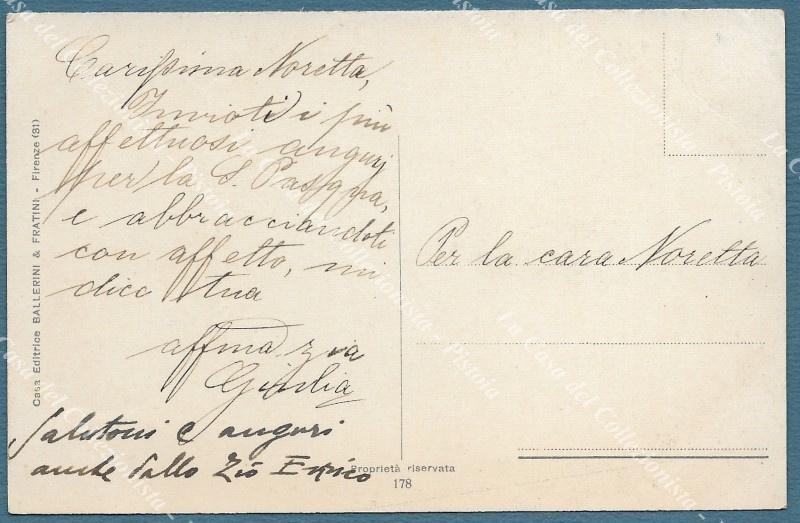 Carissima Noretta,
Invioti i più
affettuosi auguri
per la S. Pasqua,
e abbracciandoti
con affetto, mi
dico tua
affma zia
Giulia
Salutoni e auguri
anche dallo Zio Enrico
Per la cara Noretta
Casa Editrice BALLERINI & FRATINI - Firenze (31)
Proprietà riservata
178
La Casa del Collezionista - Pistoia